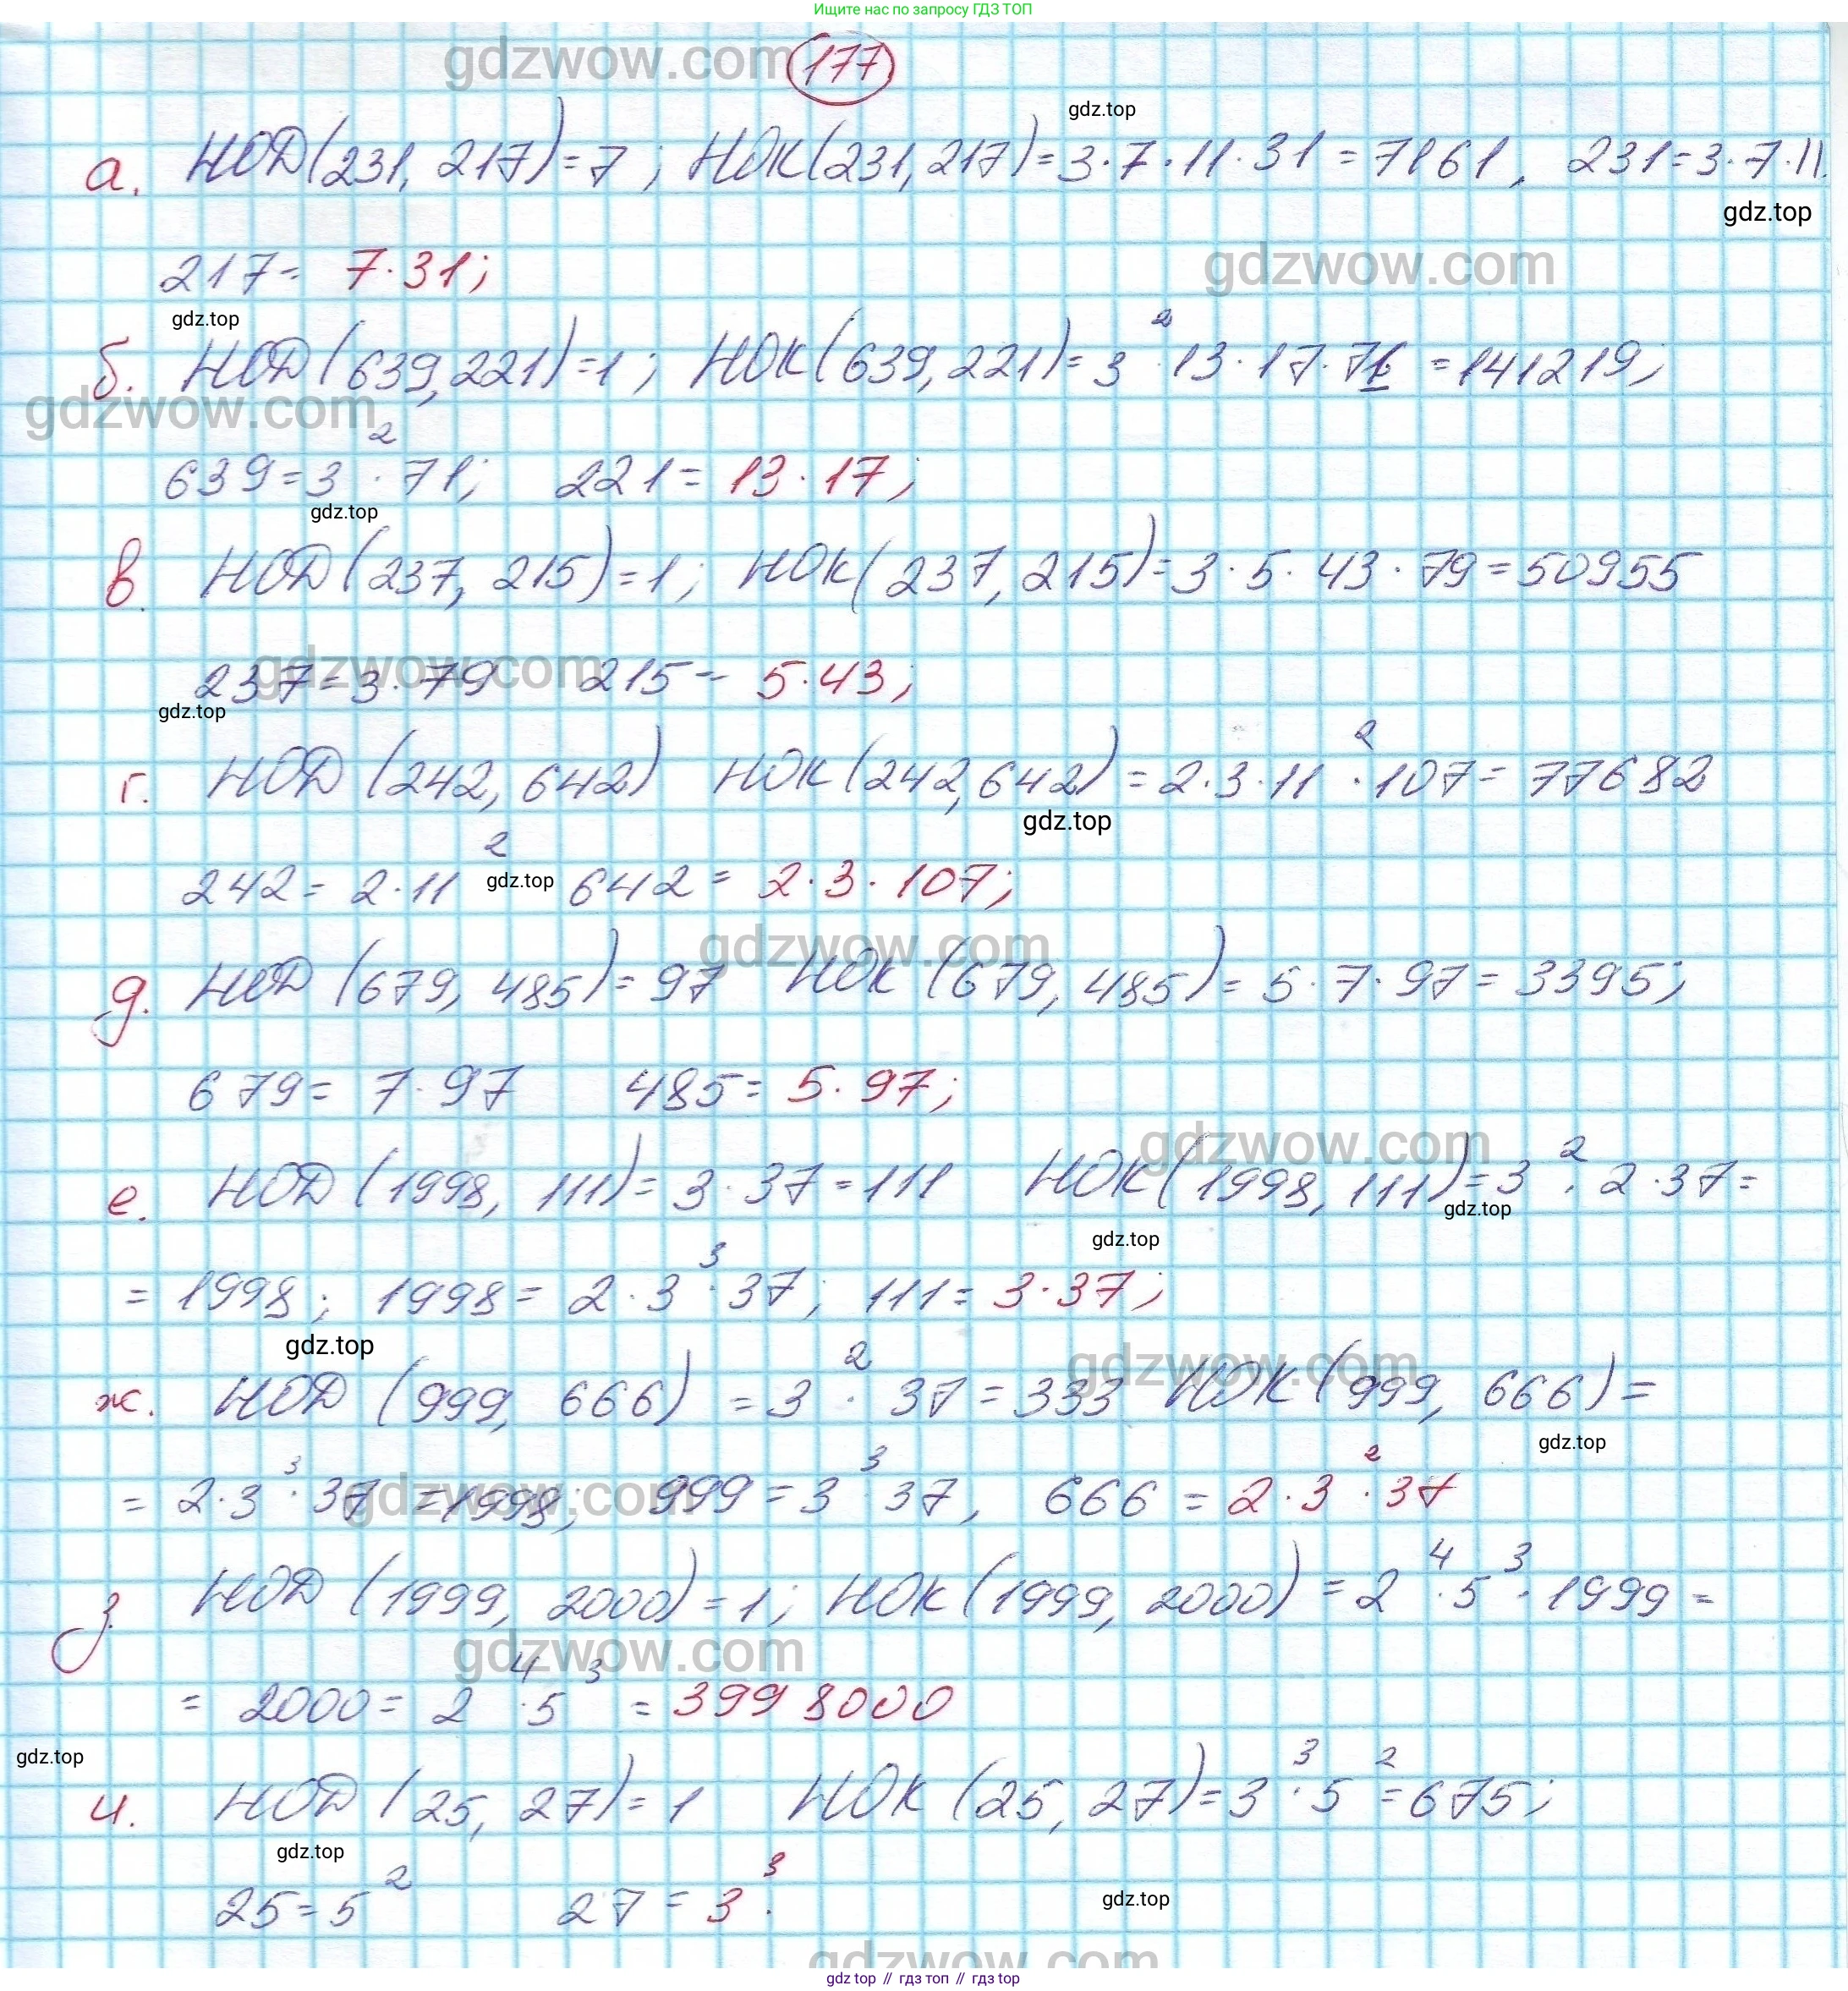 Ищите нас по запросу ГДЗ ТОП
gdzwow.com
177
gdz.top
а. НОД(231, 217)=7; НОК(231,217)=3·7·11·31=7161, 231=3·7·11.
gdz.top
217= 7·31;
gdzwow.com
gdz.top
б. НОД(639,221)=1; НОК(639,221)=3²·13·17·71=141219;
gdzwow.com
639=3²·71; 221=13·17;
gdz.top
в. НОД(237, 215)=1; НОК(237,215)=3·5·43·79=50955
gdzwow.com
237=3·79 215= 5·43;
gdz.top
г. НОД(242, 642) НОК(242,642)=2·3·11²·107=77682
gdz.top
242=2·11² 642=2·3·107;
gdz.top
gdzwow.com
д. НОД(679, 485)=97 НОК(679, 485)=5·7·97=3395;
679=7·97 485=5·97;
gdzwow.com
е. НОД(1998, 111)=3·37=111 НОК(1998, 111)=3²·2·37=
gdz.top
gdz.top
=1998; 1998=2·3³·37; 111=3·37;
gdz.top
gdzwow.com
ж. НОД(999, 666)=3²·37=333 НОК(999, 666)=
gdz.top
=2·3³·37=1998; 999=3³ 37, 666=2·3²·37
gdzwow.com
з. НОД(1999, 2000)=1; НОК(1999, 2000)=2⁴·5³·1999=
gdzwow.com
= 2000=2⁴·5³=3998000
gdz.top
и. НОД(25, 27)=1 НОК(25, 27)=3³·5²=675;
gdz.top
25=5² 27=3³.
gdz.top
gdzwow.com
gdz.top // гдз топ // гдз top